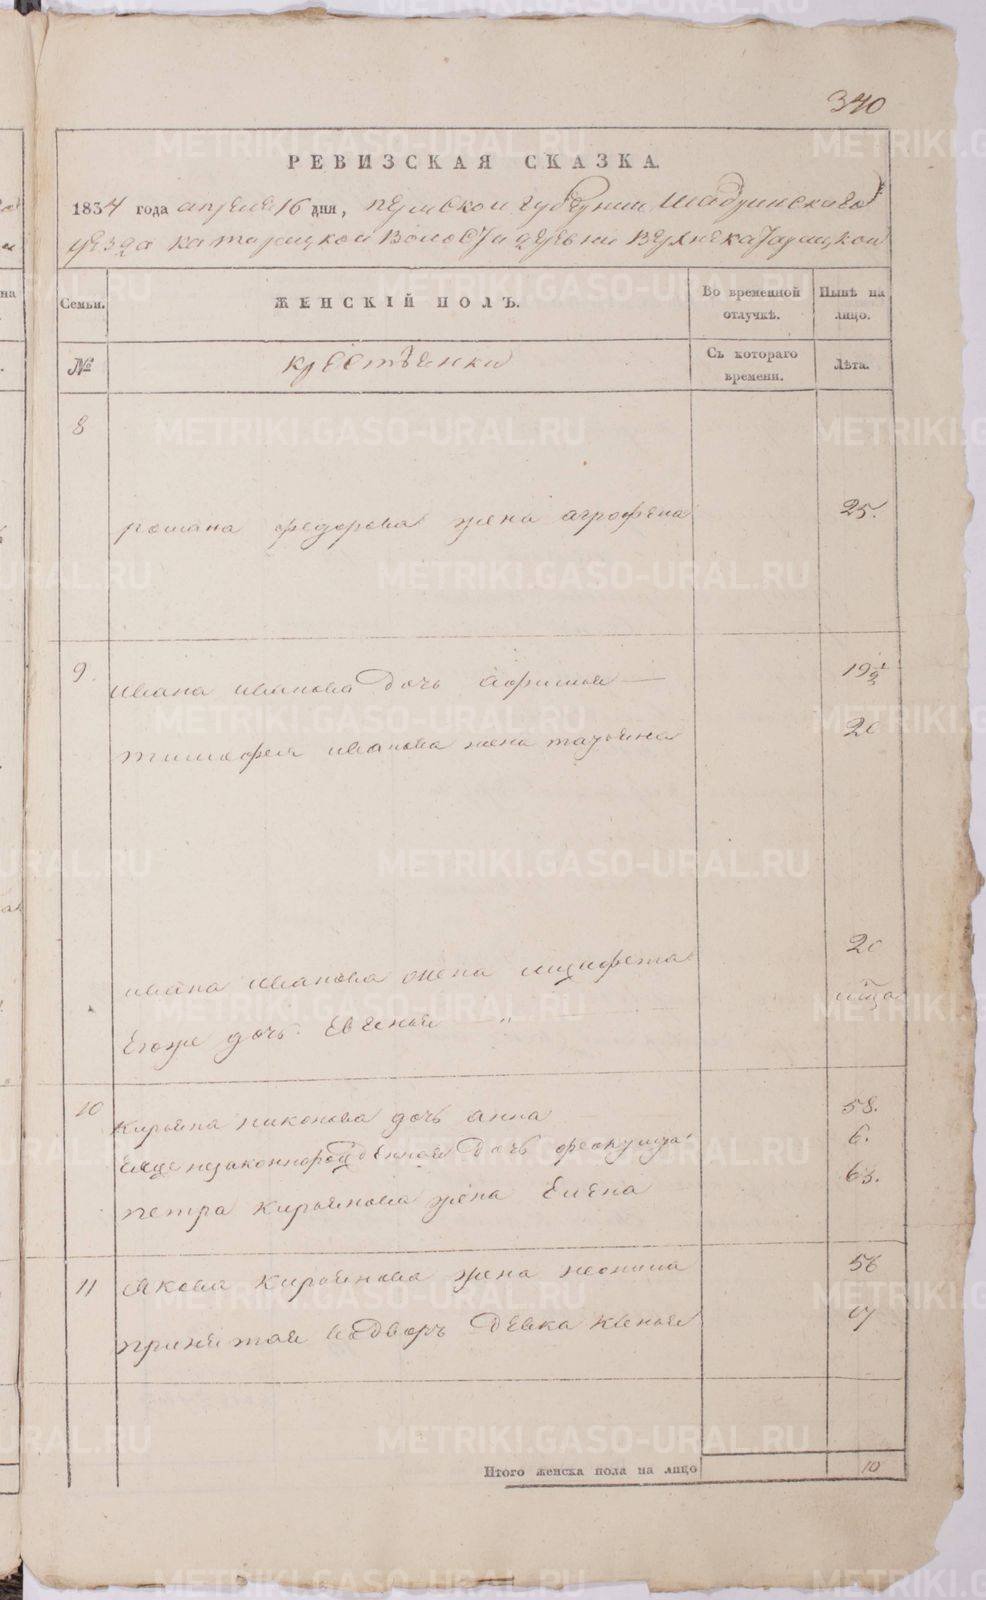 340
РЕВИЗСКАЯ СКАЗКА.
1834 года апреля 16 дня, пермской губернии Шадринскаго
уезда катарацкой Волости деревни Верхнекатарацкой
Семьи. ЖЕНСКІЙ ПОЛЪ. Во временной отлучкѣ. Нынѣ на лицо.
№ крестьянки Съ котораго времени. Лѣта.
8
романа федорова жена агрофена 25.
9. ивана иванова дочь афимья 19 1/2
тимофея иванова жена татьяна 20
ивана иванова жена 20
Егоже дочь
10 кирьяна никонова дочь анна 58.
Ея незаконнорожденная дочь 6.
петра кирьянова жена Елена 63.
11 Якова кирьянова жена неонила 56
принятая во Дворъ Девка 17
Итого женска пола на лицо 10
METRIKI.GASO-URAL.RU